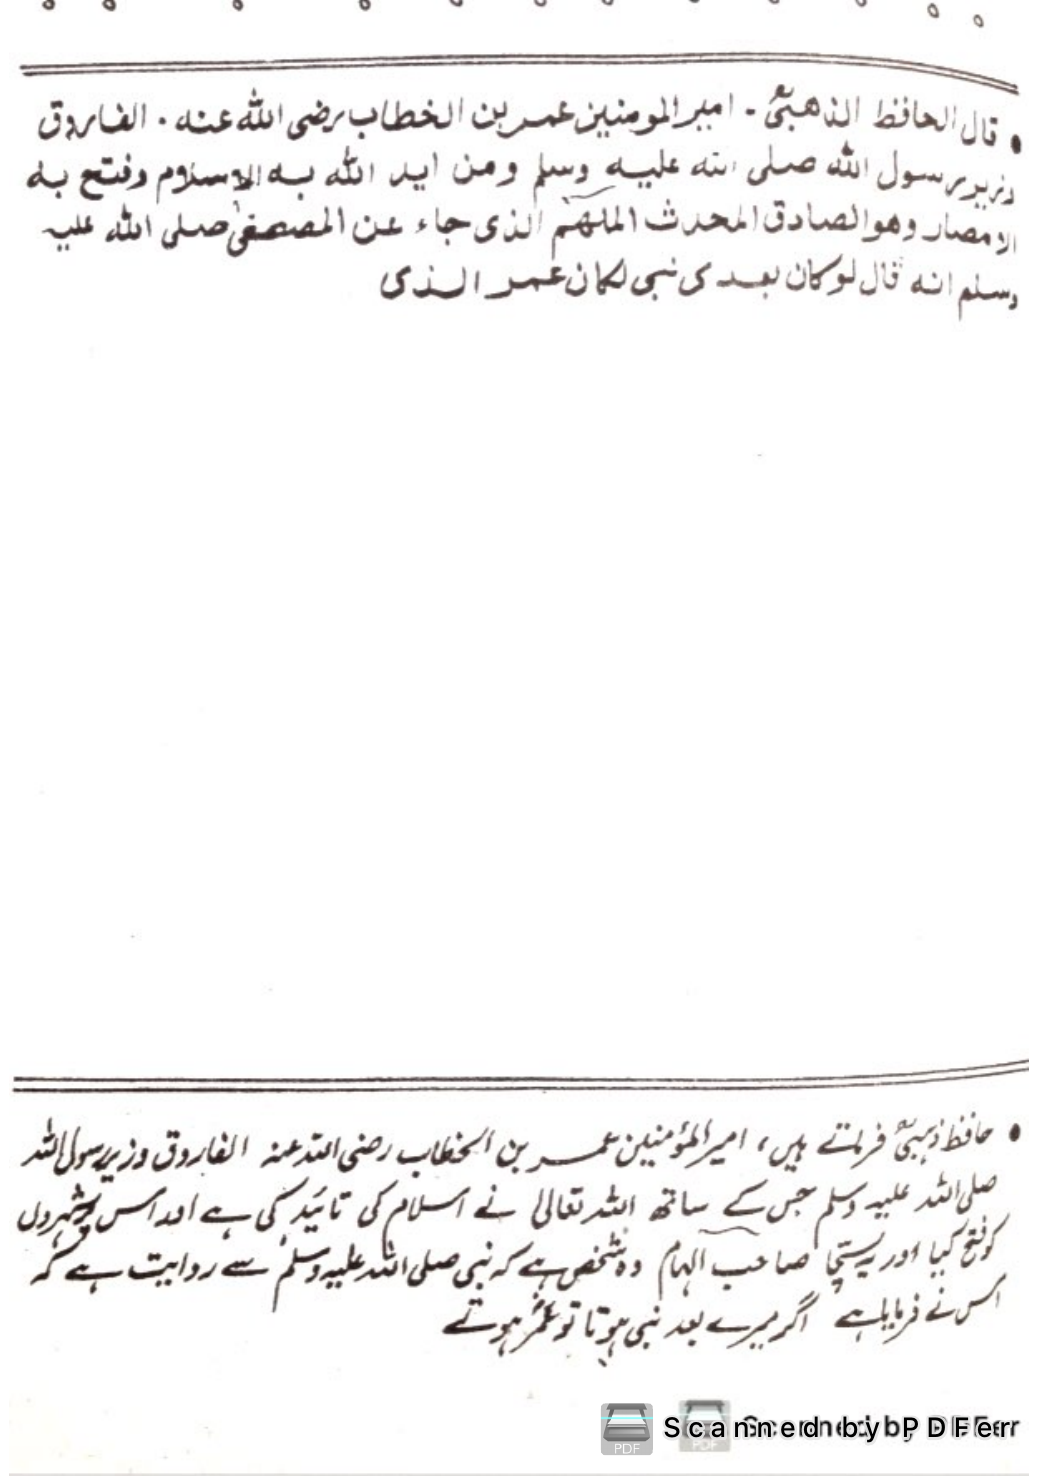 • قال الحافظ الذهبیؒ - امیر المومنین عمر بن الخطاب رضی اللہ عنہ . الفاروق
وزیر رسول اللہ صلی اللہ علیہ وسلم ومن اید اللہ بہ الاسلام وفتح بہ
الامصار وھو الصادق المحدث الملھم الذی جاء عن المصطفیٰ صلی اللہ علیہ
وسلم انہ قال لو کان بعدی نبی لکان عمر الذی
• حافظ ذہبیؒ فرماتے ہیں، امیر المؤمنین عمر بن الخطاب رضی اللہ عنہ الفاروق وزیر رسول اللہ
صلی اللہ علیہ وسلم جس کے ساتھ اللہ تعالیٰ نے اسلام کی تائید کی ہے اور اس پر شہروں
کو فتح کیا اور یہ سچا صاحب الہام وہ شخص ہے کہ نبی صلی اللہ علیہ وسلم سے روایت ہے کہ
اس نے فرمایا ہے اگر میرے بعد نبی ہوتا تو عمرؓ ہوتے
Scanned by PDFer